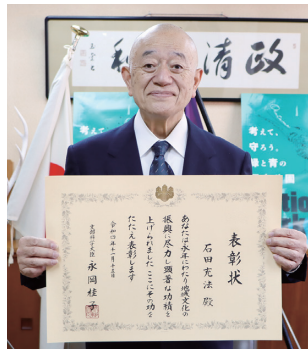 政清
考えて、
守ろう。
考えて、
守ろう。
緑と青の
表彰状
石田克法 殿
あなたは永年にわたり地域文化の
振興に尽力し顕著な功績を
上げられました ここにその功を
たたえ表彰します
令和四年十一月十五日
文部科学大臣
永岡桂子